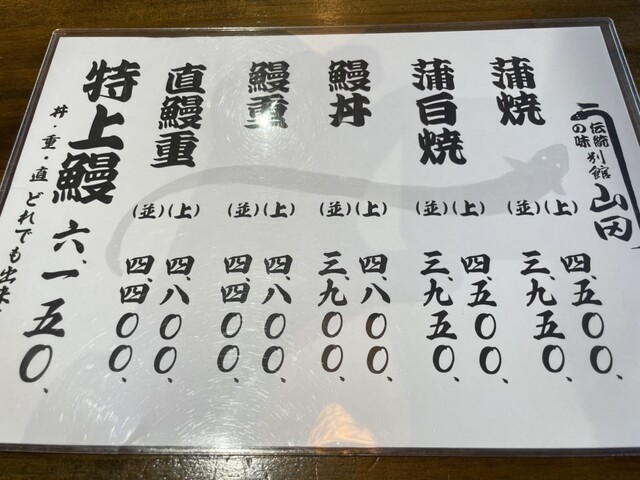 伝統の味
別館
山田
蒲焼
(上)
四、五〇〇、
(並)
三、九五〇、
蒲白焼
(上)
四、五〇〇、
(並)
三、九五〇、
鰻丼
(上)
四、八〇〇、
(並)
三、九〇〇、
鰻重
(上)
四、八〇〇、
(並)
四、四〇〇、
直鰻重
(上)
四、八〇〇、
(並)
四、四〇〇、
特上鰻 六、一五〇、
丼・重・直 どれでも出来